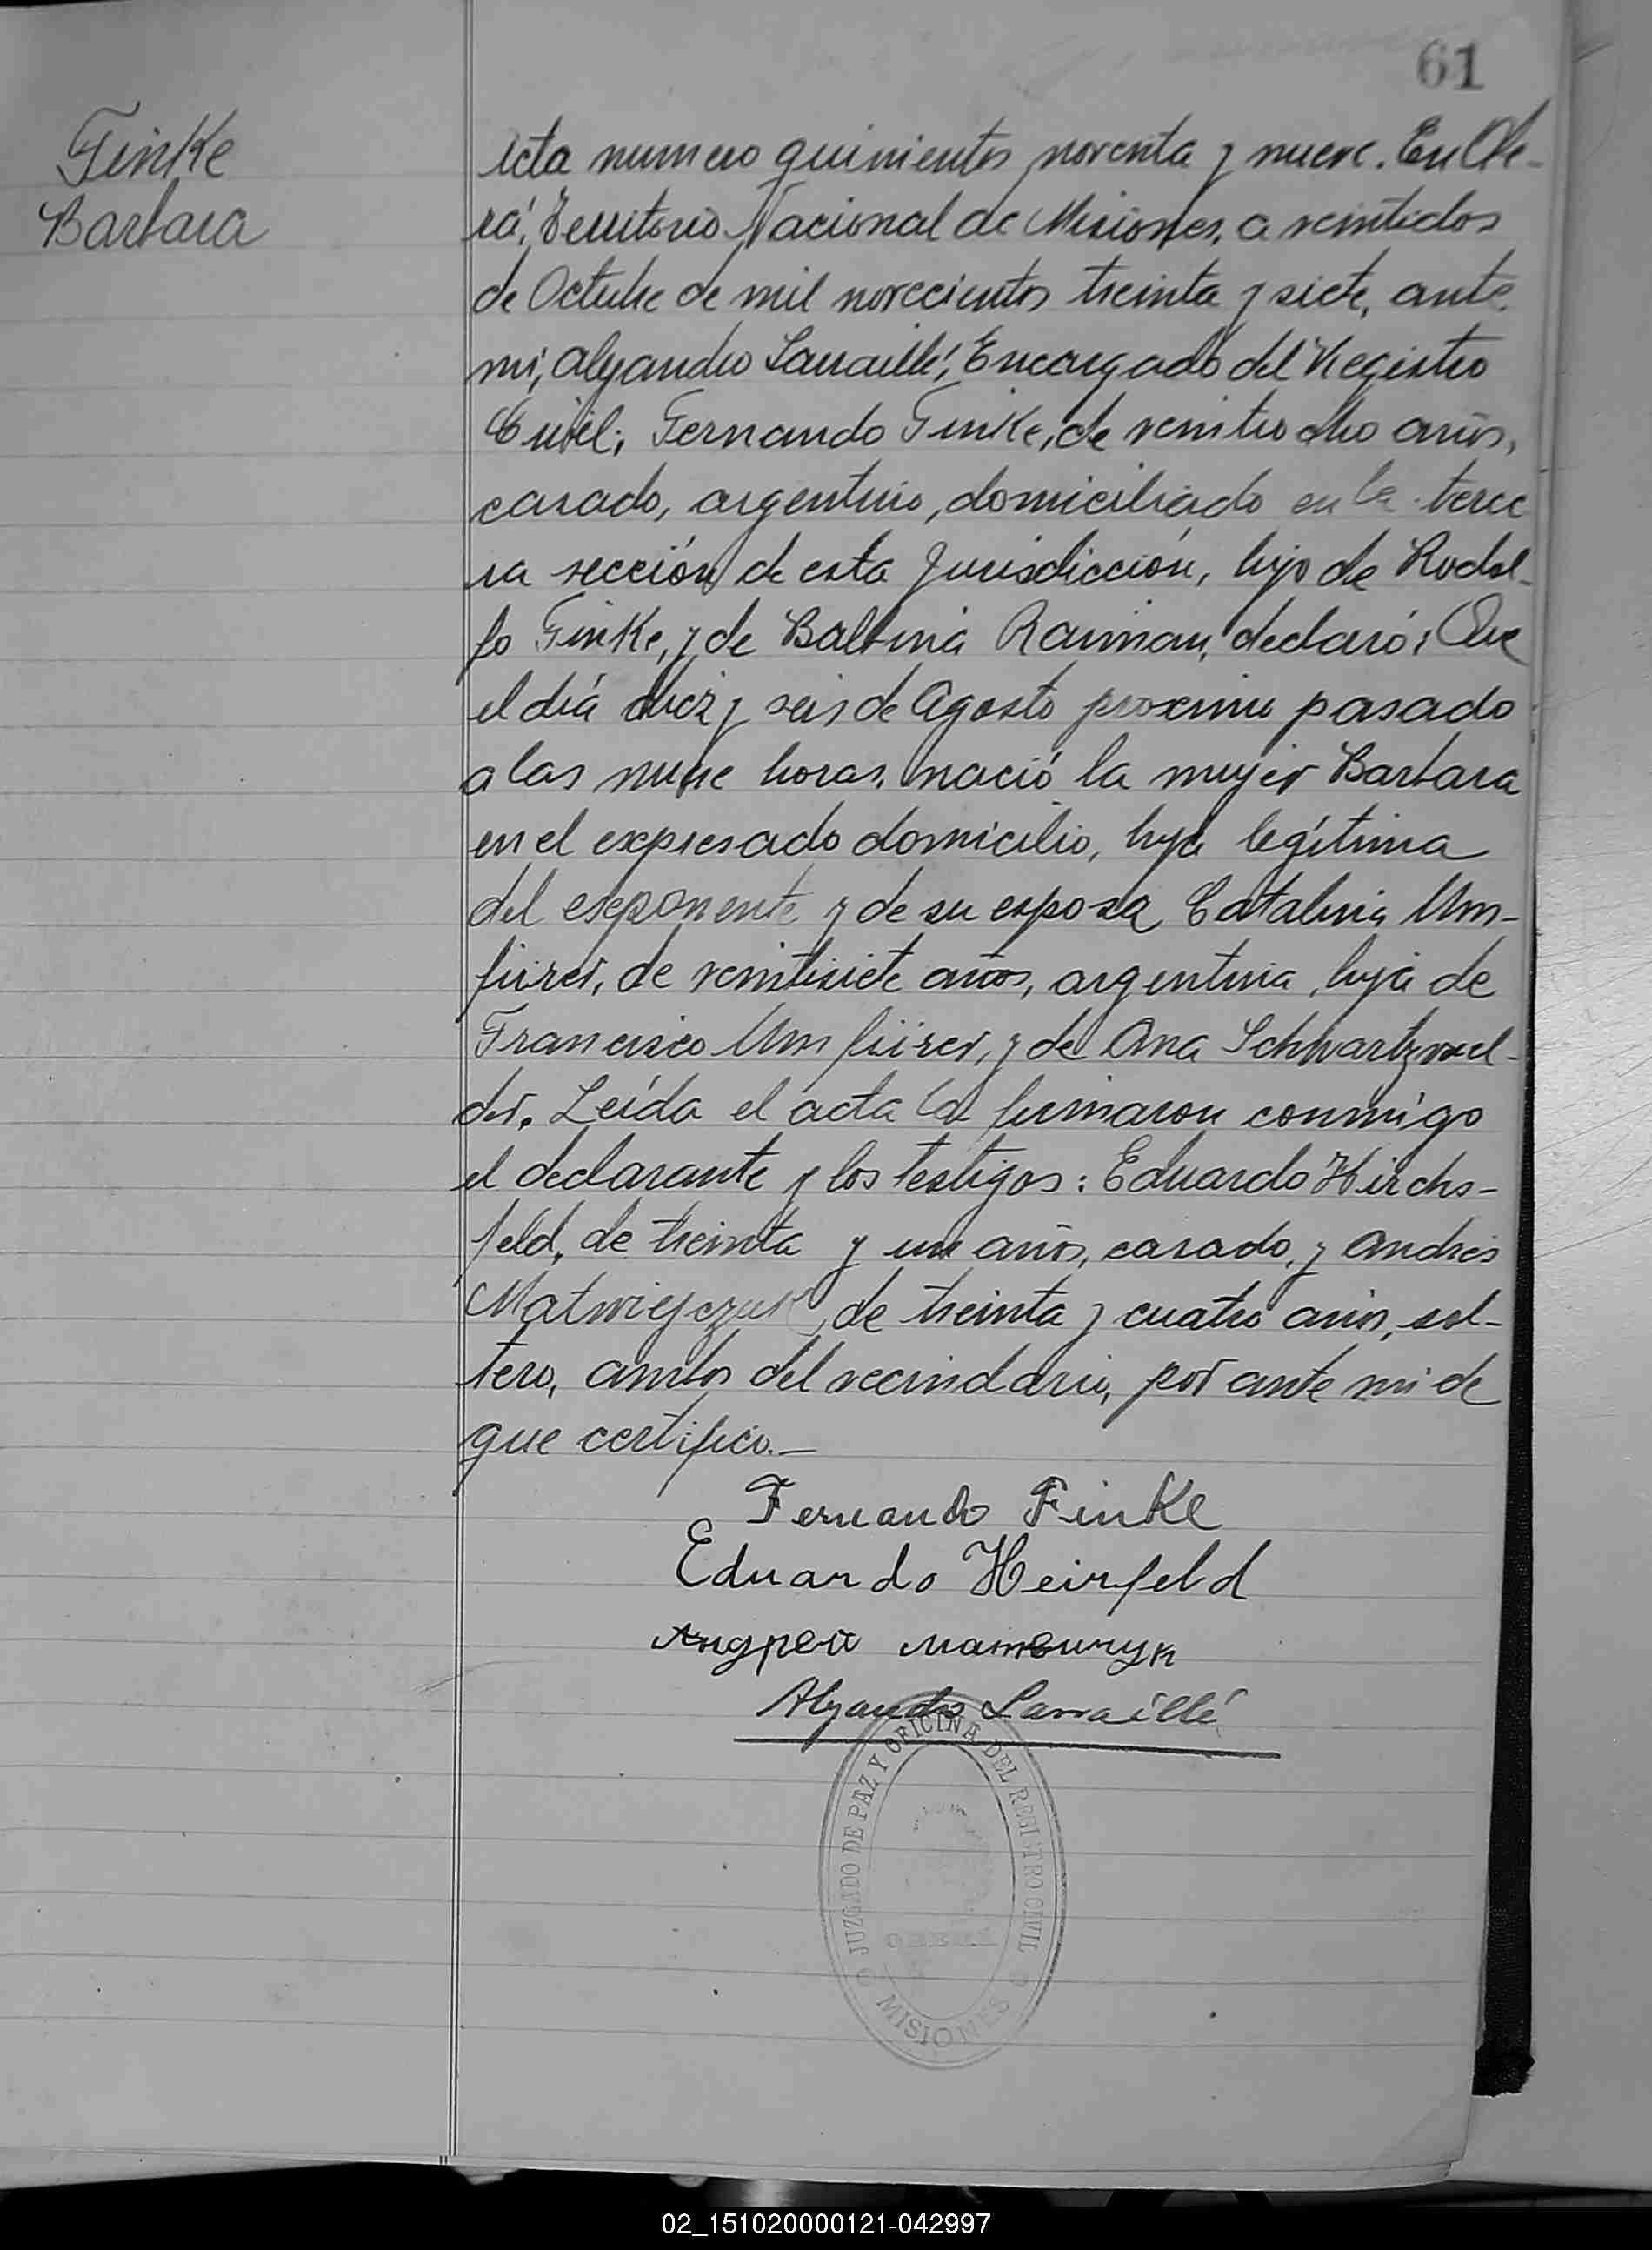 61
Finke
Barbara
Acta numero quinientos noventa y nueve. En Obe-
rá, Territorio Nacional de Misiones, a veintidos
de Octubre de mil novecientos treinta y siete, ante
mi, Alejandro Larraillé, Encargado del Registro
Civil; Fernando Finke, de veintiocho años,
casado, argentino, domiciliado en la terce
ra sección de esta Jurisdicción, hijo de Rodol-
fo Finke, y de Balbina Raiman, declaró: Que
el día diez y seis de Agosto proximo pasado
a las nueve horas, nació la mujer Barbara
en el expresado domicilio, hija legítima
del exponente y de su esposa Catalina Um-
fürer, de veintisiete años, argentina, hija de
Francisco Umfürer, y de Ana Schwartzwel-
der. Leída el acta la firmaron conmigo
el declarante y los testigos: Eduardo Hirchs-
feld, de treinta y un años, casado, y Andrés
Matwiejczuk, de treinta y cuatro años, sol-
tero, ambos del vecindario, por ante mi de
que certifico.—
Fernando Finke
Eduardo Heirfeld
Андрей Матвийчук
Alejandro Larraillé
JUZGADO DE PAZ Y OFICINA DEL REGISTRO CIVIL
OBERÁ
MISIONES
02_151020000121-042997